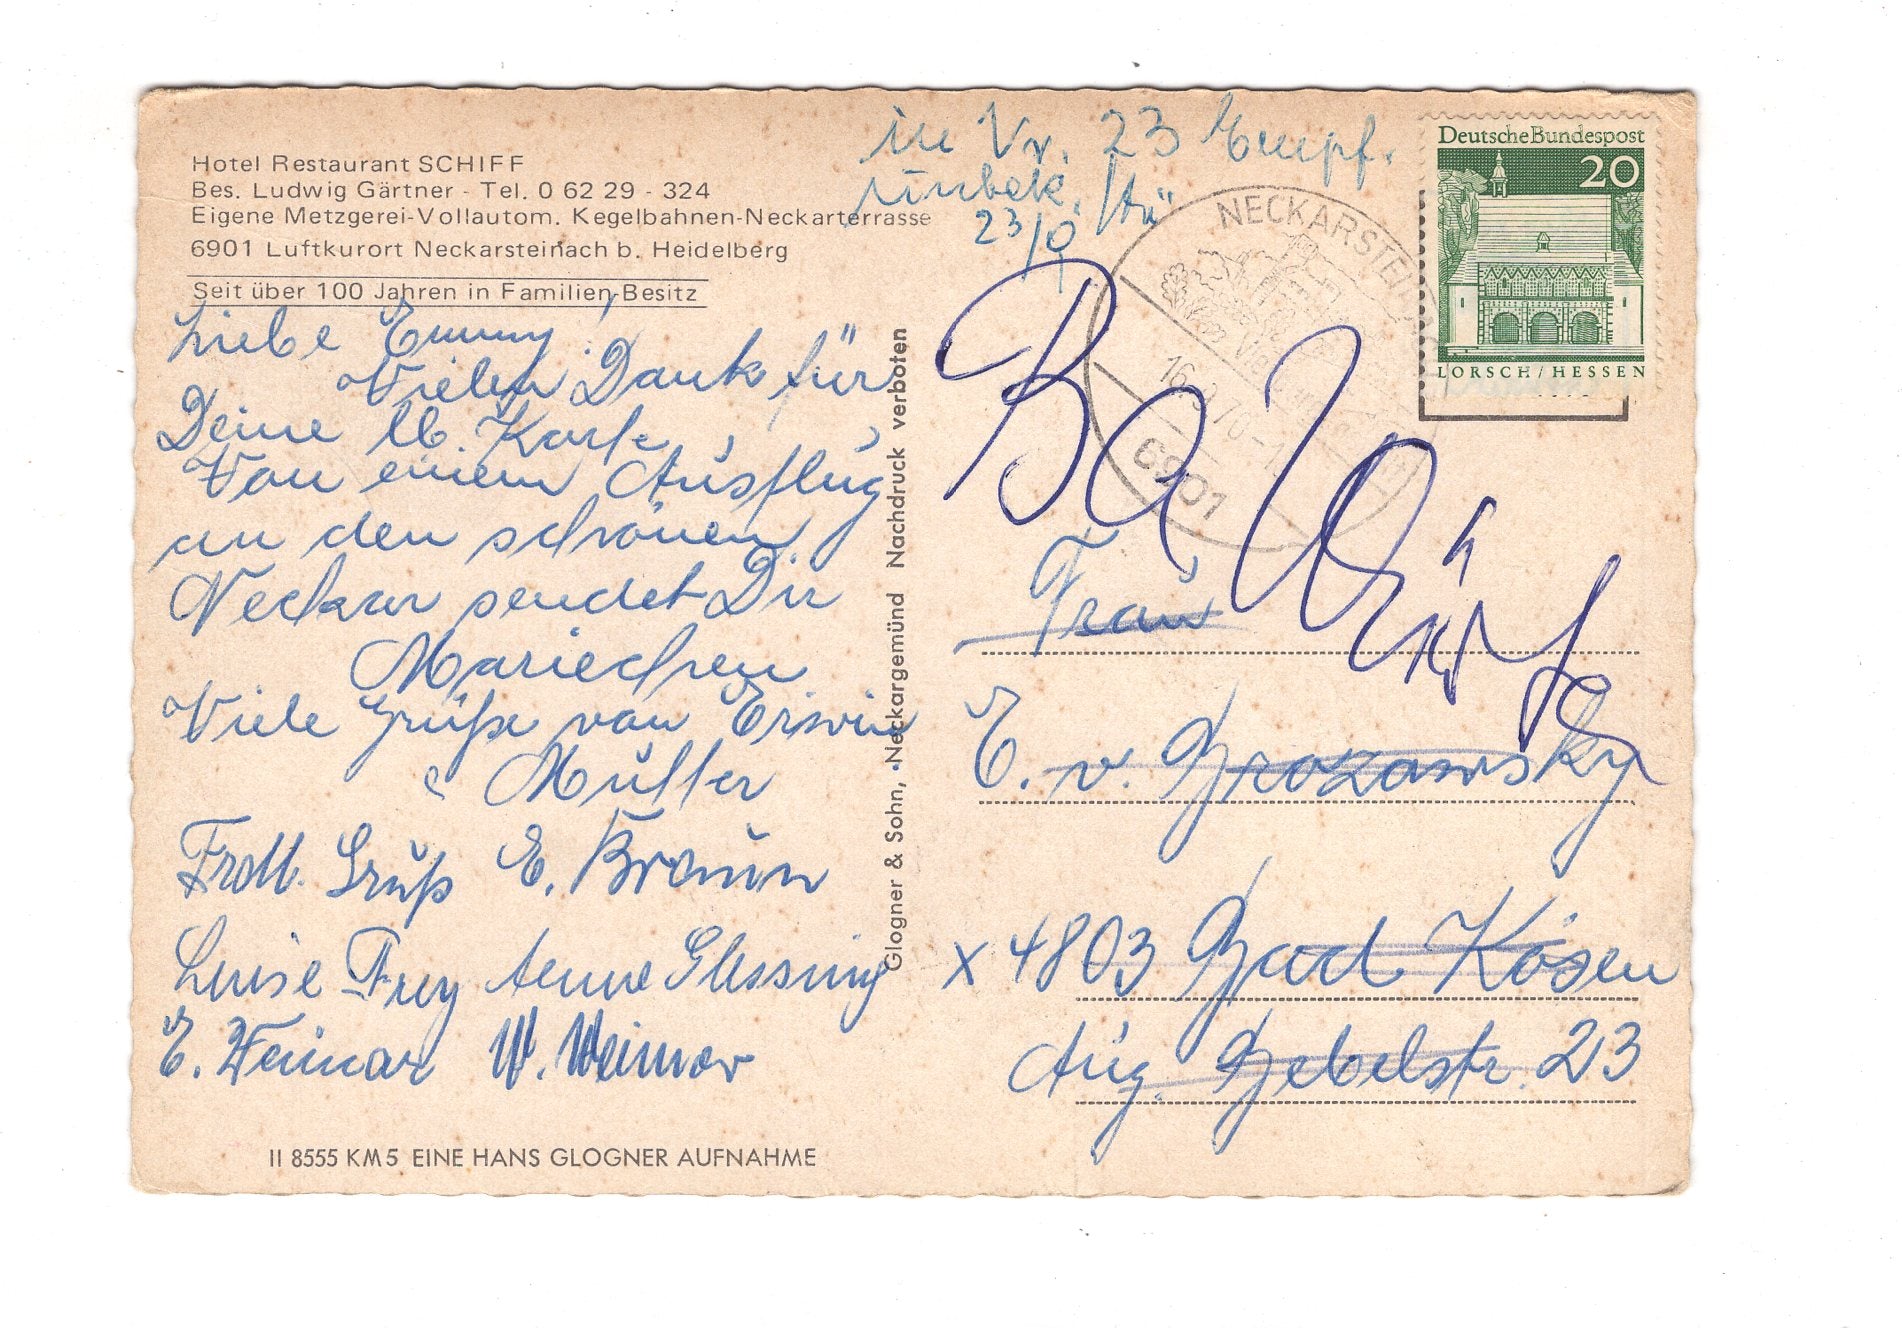 Hotel Restaurant SCHIFF
Bes. Ludwig Gärtner - Tel. 0 62 29 - 324
Eigene Metzgerei-Vollautom. Kegelbahnen-Neckarterrasse
6901 Luftkurort Neckarsteinach b. Heidelberg
Seit über 100 Jahren in Familien-Besitz
Liebe Emmy!
Vielen Dank für
Deine lb. Karte,
Von einem Ausflug
an den schönen
Neckar sendet Dir
Mariechen
Viele Grüße von Erwin
Müller
Frdl. Gruß E. Braun
Luise Frey Aenne Glessing
E. Weimar W. Weimar
II 8555 KM5 EINE HANS GLOGNER AUFNAHME
Glogner & Sohn, Neckargemünd Nachdruck verboten
in Nr. 23 Empf.
unbek.
23/9
NECKARSTEINACH
16.9.70-1
6901
Deutsche Bundespost
20
LORSCH/HESSEN
Frau
E. v. Grozawsky
X 4803 Bad Kösen
Aug. Bebelstr. 23